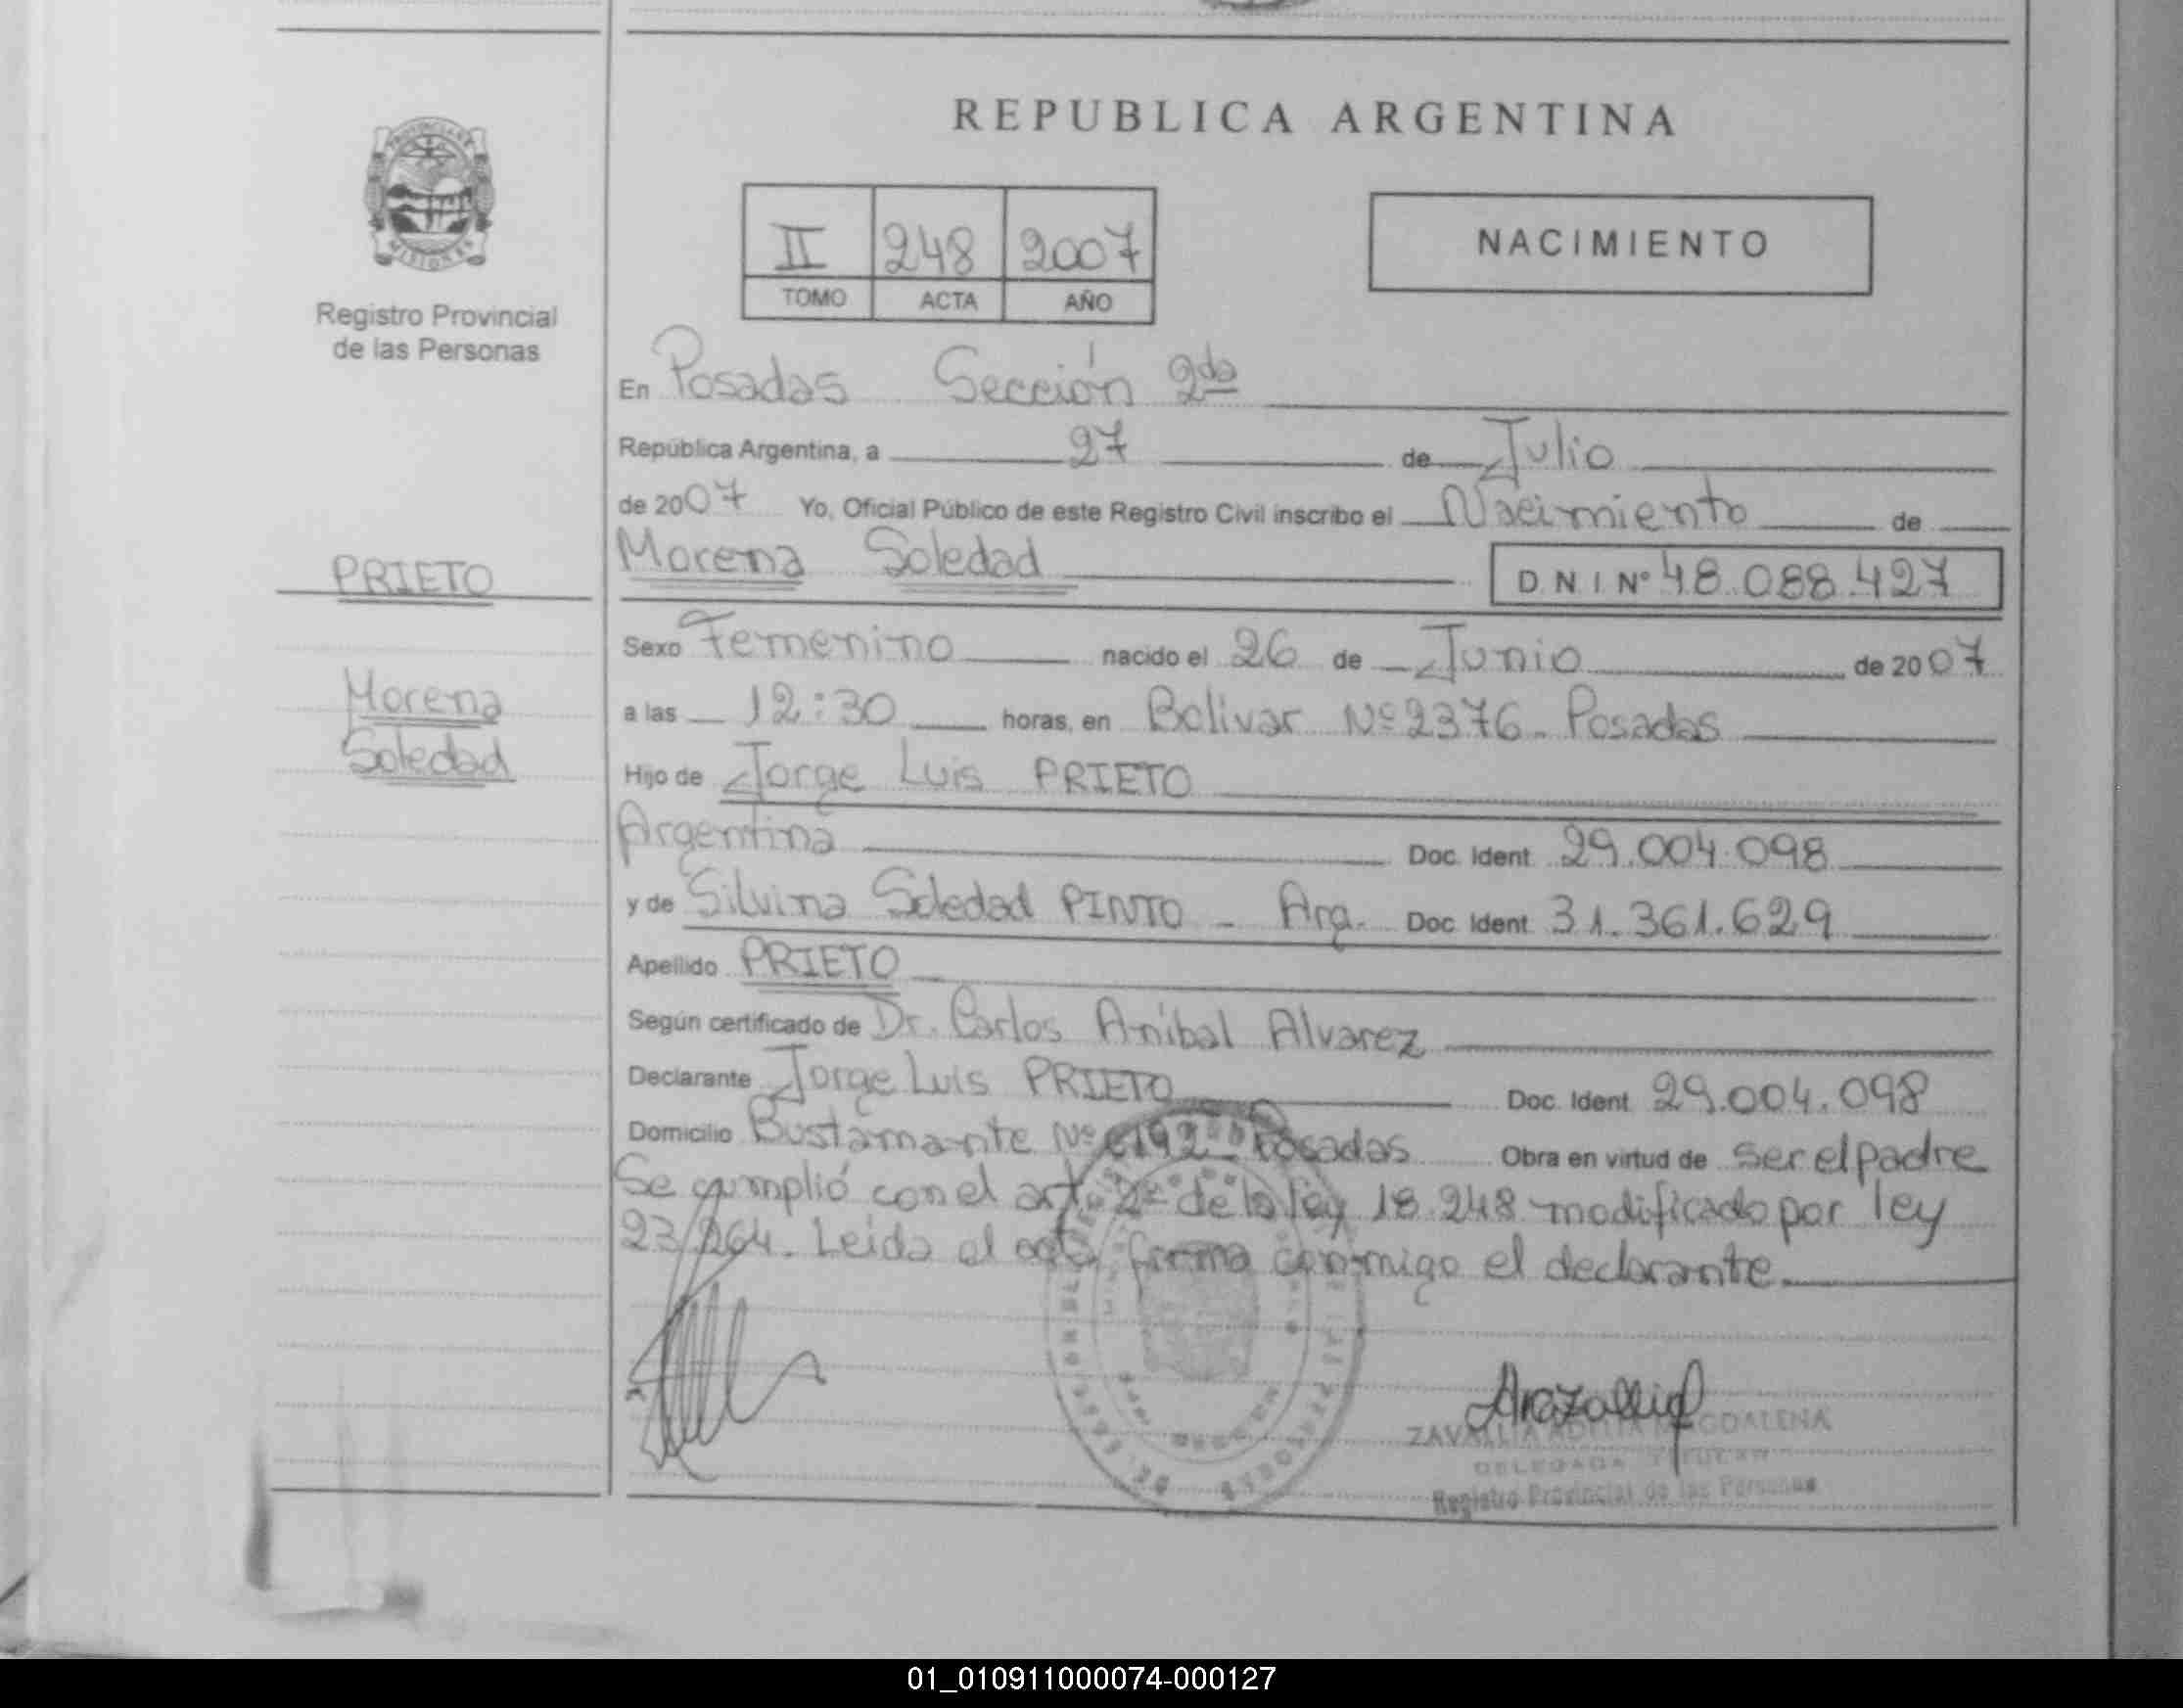 REPUBLICA ARGENTINA
PROVINCIA DE
MISIONES
Registro Provincial
de las Personas
II 248 2007
TOMO ACTA AÑO
NACIMIENTO
En Posadas Sección 2da
República Argentina, a 27 de Julio
de 2007 Yo, Oficial Público de este Registro Civil inscribo el Nacimiento de
PRIETO
Morena Soledad D.N.I Nº 48.088.427
Sexo Femenino nacido el 26 de Junio de 2007
Morena
Soledad
a las 12:30 horas, en Bolivar Nº 2376 - Posadas
Hijo de Jorge Luis PRIETO
Argentina Doc. Ident. 29.004.098
y de Silvina Soledad PINTO - Arg. Doc. Ident. 31.361.629
Apellido PRIETO
Según certificado de Dr. Carlos Aníbal Alvarez
Declarante Jorge Luis PRIETO Doc. Ident. 29.004.098
Domicilio Bustamante Nº 6192 - Posadas Obra en virtud de ser el padre
Se cumplió con el art. 2º de la ley 18.248 modificado por ley
23.264. Leida el acta firma conmigo el declarante.
ZAVALLIA ADELIA MAGDALENA
DELEGADA TITULAR
Registro Provincial de las Personas
01_010911000074-000127